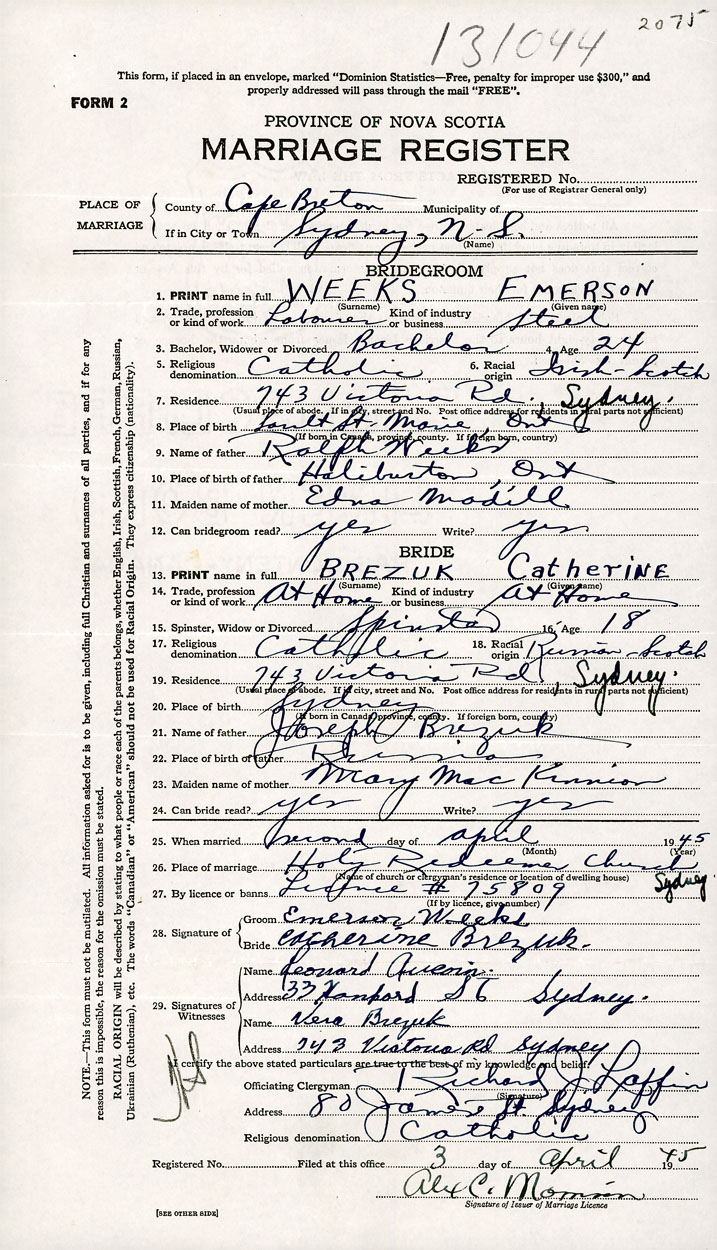 2075
131044
This form, if placed in an envelope, marked "Dominion Statistics—Free, penalty for improper use $300," and
properly addressed will pass through the mail "FREE".
FORM 2
PROVINCE OF NOVA SCOTIA
MARRIAGE REGISTER
REGISTERED No.
(For use of Registrar General only)
PLACE OF MARRIAGE
County of Cape Breton Municipality of
If in City or Town Sydney, N-S.
(Name)
BRIDEGROOM
1. PRINT name in full WEEKS EMERSON
(Surname) (Given name)
2. Trade, profession or kind of work Labourer Kind of industry or business Steel
3. Bachelor, Widower or Divorced Bachelor 4. Age 24
5. Religious denomination Catholic 6. Racial origin Irish-Scotch
7. Residence 743 Victoria Rd, Sydney.
(Usual place of abode. If in city, street and No. Post office address for residents in rural parts not sufficient)
8. Place of birth Sault St. Marie, Ont
(If born in Canada, province, county. If foreign born, country)
9. Name of father Ralph Weeks
10. Place of birth of father Haliburton, Ont
11. Maiden name of mother Edna Madill
12. Can bridegroom read? yes Write? yes
BRIDE
13. PRINT name in full BREZUK CatherINE
(Surname) (Given name)
14. Trade, profession or kind of work At Home Kind of industry or business At Home
15. Spinster, Widow or Divorced Spinster 16. Age 18
17. Religious denomination Catholic 18. Racial origin Russian-Scotch
19. Residence 743 Victoria Rd, Sydney.
(Usual place of abode. If in city, street and No. Post office address for residents in rural parts not sufficient)
20. Place of birth Sydney
(If born in Canada, province, county. If foreign born, country)
21. Name of father Joseph Brezuk
22. Place of birth of father Russia
23. Maiden name of mother Mary Mac Kinnion
24. Can bride read? yes Write? yes
25. When married second day of april 1945
(Month) (Year)
26. Place of marriage Holy Redeemer Church Sydney
(Name of church or clergyman's residence or location of dwelling house)
27. By licence or banns Licence # 75809
(If by licence, give number)
28. Signature of
Groom Emerson Weeks
Bride Catherine Brezuk.
29. Signatures of Witnesses
Name Leonard
Address 33 Hanford St Sydney.
Name Vera Brezuk
Address 743 Victoria Rd Sydney
I certify the above stated particulars are true to the best of my knowledge and belief.
Officiating Clergyman Richard J. Laffin
(Signature)
Address 80 James St. Sydney
Religious denomination Catholic
Registered No. Filed at this office 3 day of April 1945
Alex C.
Signature of Issuer of Marriage Licence
[SEE OTHER SIDE]
NOTE.—This form must not be mutilated. All information asked for is to be given, including full Christian and surnames of all parties, and if for any
reason this is impossible, the reason for the omission must be stated.
RACIAL ORIGIN will be described by stating to what people or race each of the parents belongs, whether English, Irish, Scottish, French, German, Russian,
Ukrainian (Ruthenian), etc. The words "Canadian" or "American" should not be used for Racial Origin. They express citizenship (nationality).